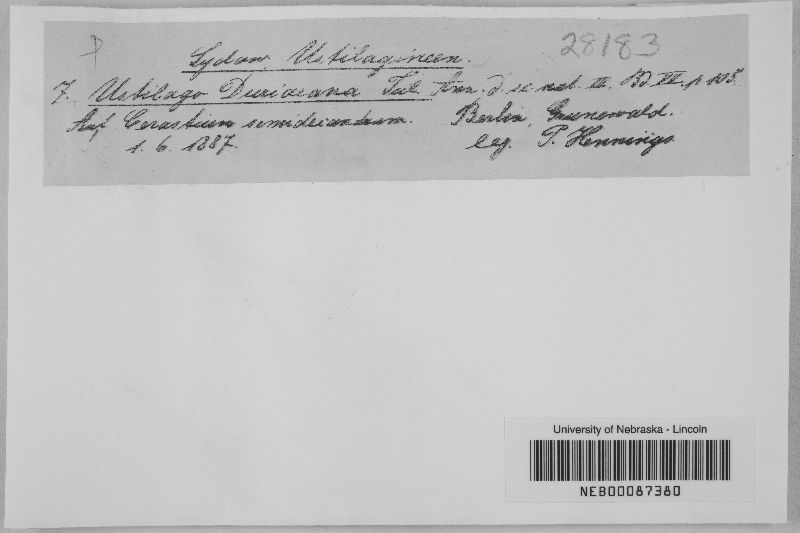 P 28183
Sydow, Ustilagineen.
7. Ustilago Duriaeana Tul. Ann. d. sc. nat. III. Bd VII. p. 105.
Auf Cerastium semidecandrum. Berlin, Grunewald.
1. 6. 1887. leg. P. Hennings
University of Nebraska - Lincoln
NEB00087380